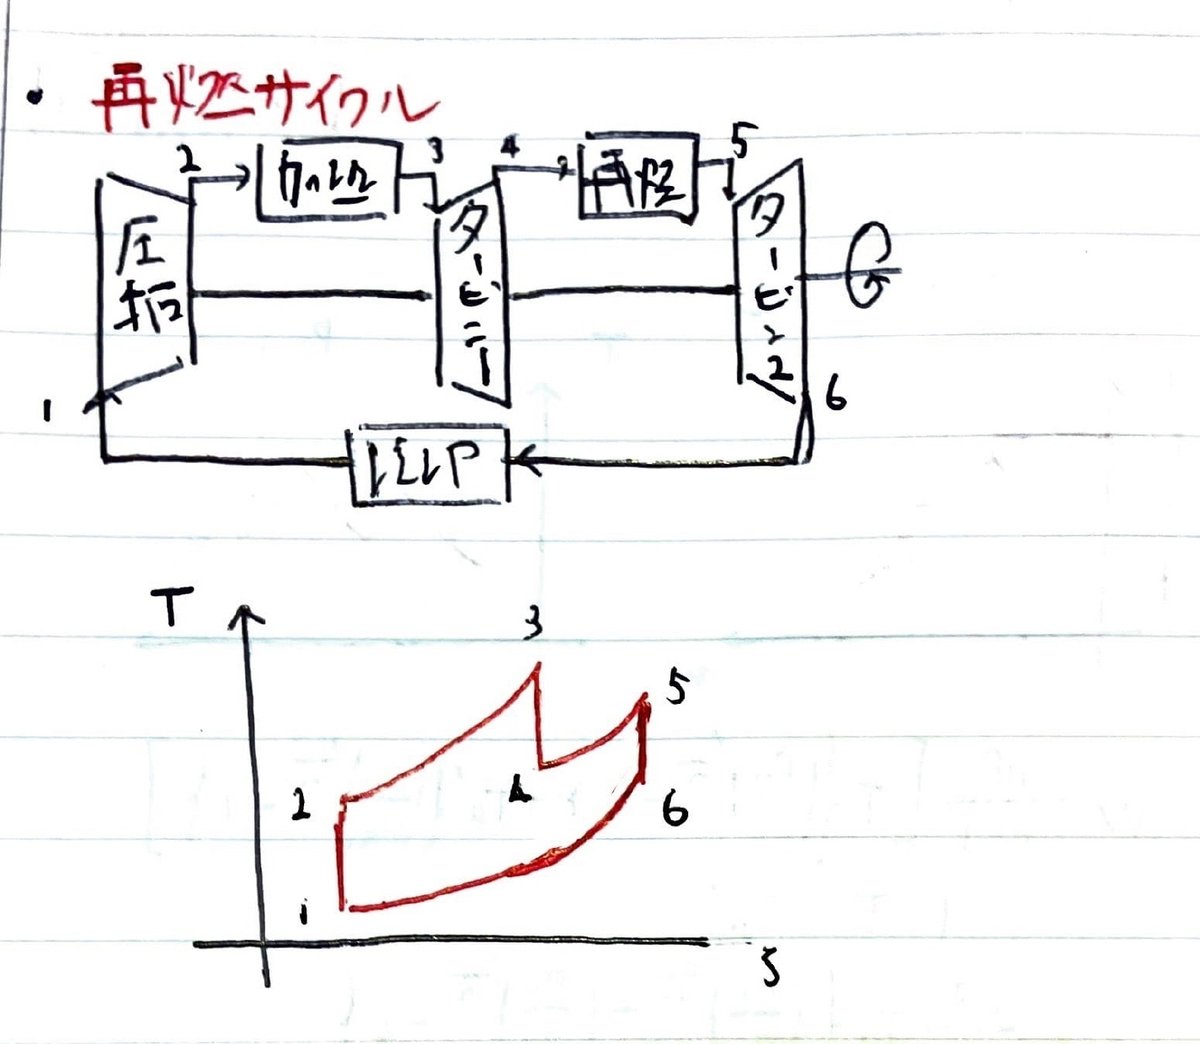 ・再燃サイクル
2 3 4 5
圧
タービン1
再燃
タービン2
1 6
T
3
5
2 4
6
1
S